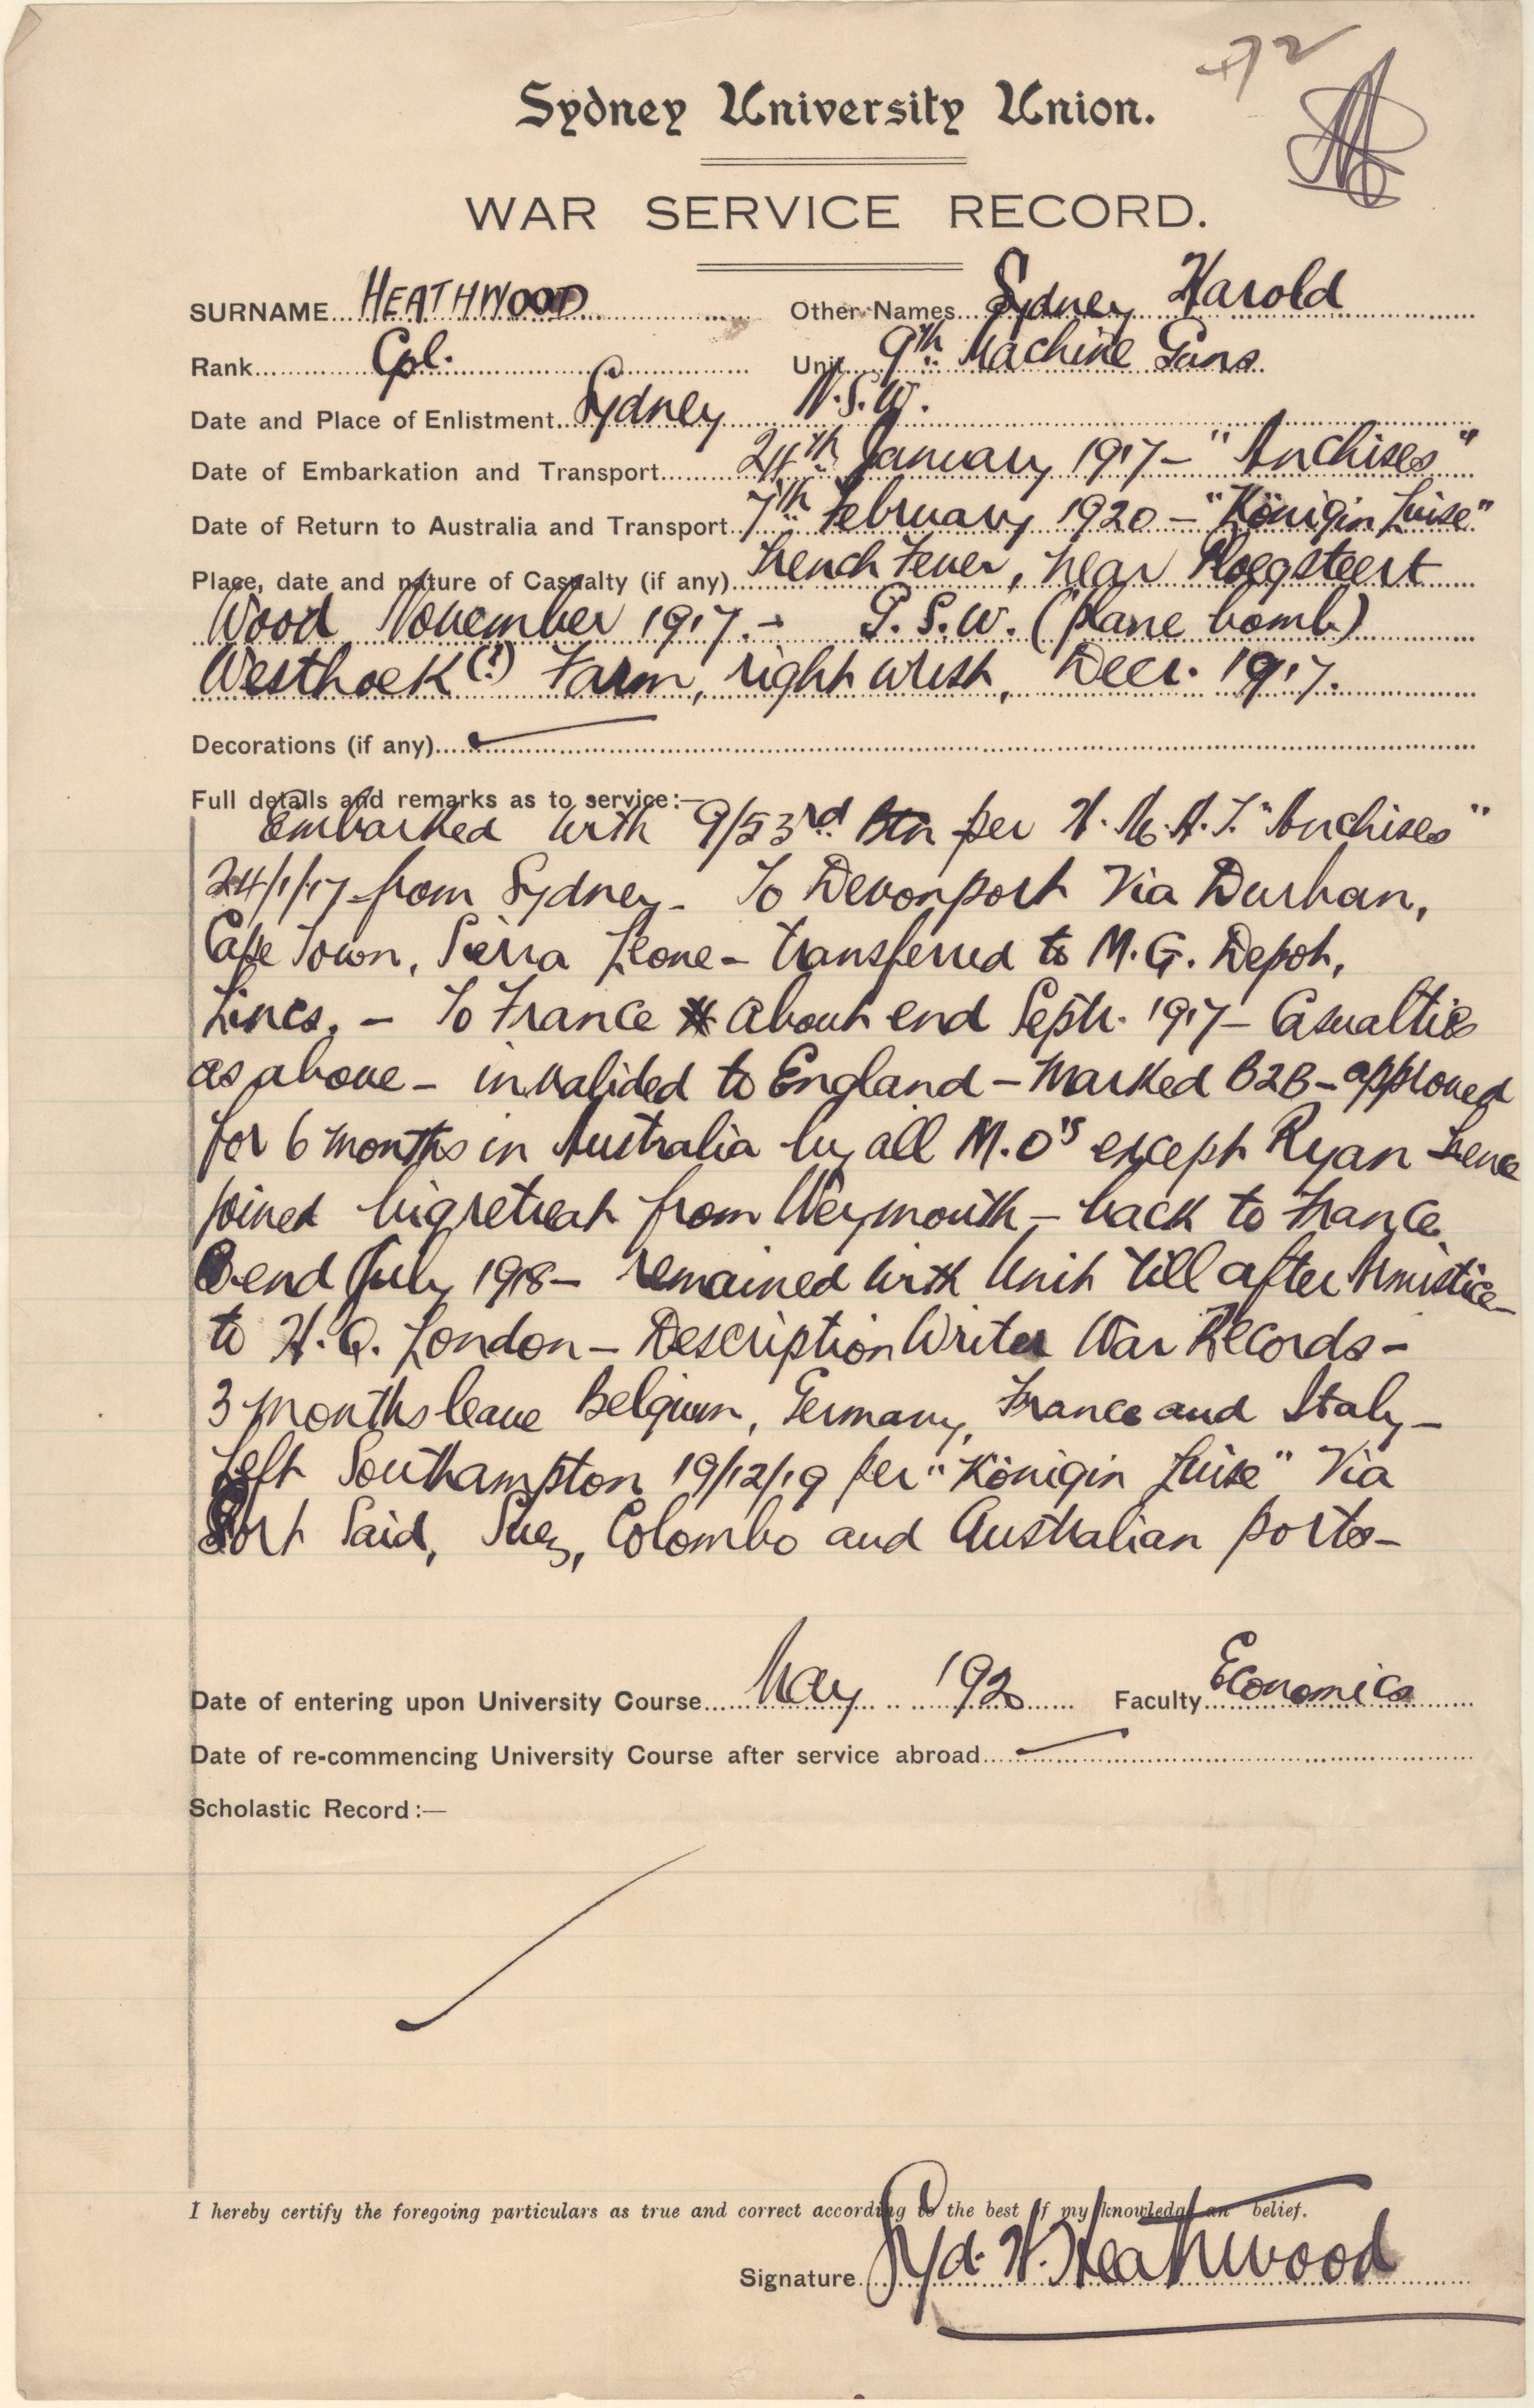 Sydney University Union.
WAR SERVICE RECORD.
SURNAME HEATHWOOD Other Names Sydney Harold
Rank Cpl. Unit 9th Machine Guns
Date and Place of Enlistment Sydney N.S.W.
Date of Embarkation and Transport 24th January 1917 - "Anchises"
Date of Return to Australia and Transport 7th February 1920 - "Königin Luise"
Place, date and nature of Casualty (if any) Trench Fever, near Ploegsteert
Wood November 1917. - G.S.W. (plane bomb)
Westhoek (?) Farm, right wrist, Decr. 1917.
Decorations (if any)
Full details and remarks as to service:—
Embarked with 9/53rd Btn per H.M.A.T. "Anchises"
24/1/17 from Sydney - To Devonport via Durban,
Cape Town, Sierra Leone - transferred to M.G. Depot,
Lincs. - To France about end Septr. 1917 - Casualties
as above - invalided to England - marked B2B - approved
for 6 months in Australia by all M.O's except Ryan hence
joined big retreat from Weymouth - back to France
end July 1918 - remained with Unit till after Armistice -
to H.Q. London - Description Writer War Records -
3 months leave Belgium, Germany, France and Italy -
Left Southampton 19/12/19 per "Königin Luise" via
Port Said, Suez, Colombo and Australian ports -
Date of entering upon University Course May 1920 Faculty Economics
Date of re-commencing University Course after service abroad
Scholastic Record:—
I hereby certify the foregoing particulars as true and correct according to the best of my knowledge an belief.
Signature Syd. H. Heathwood